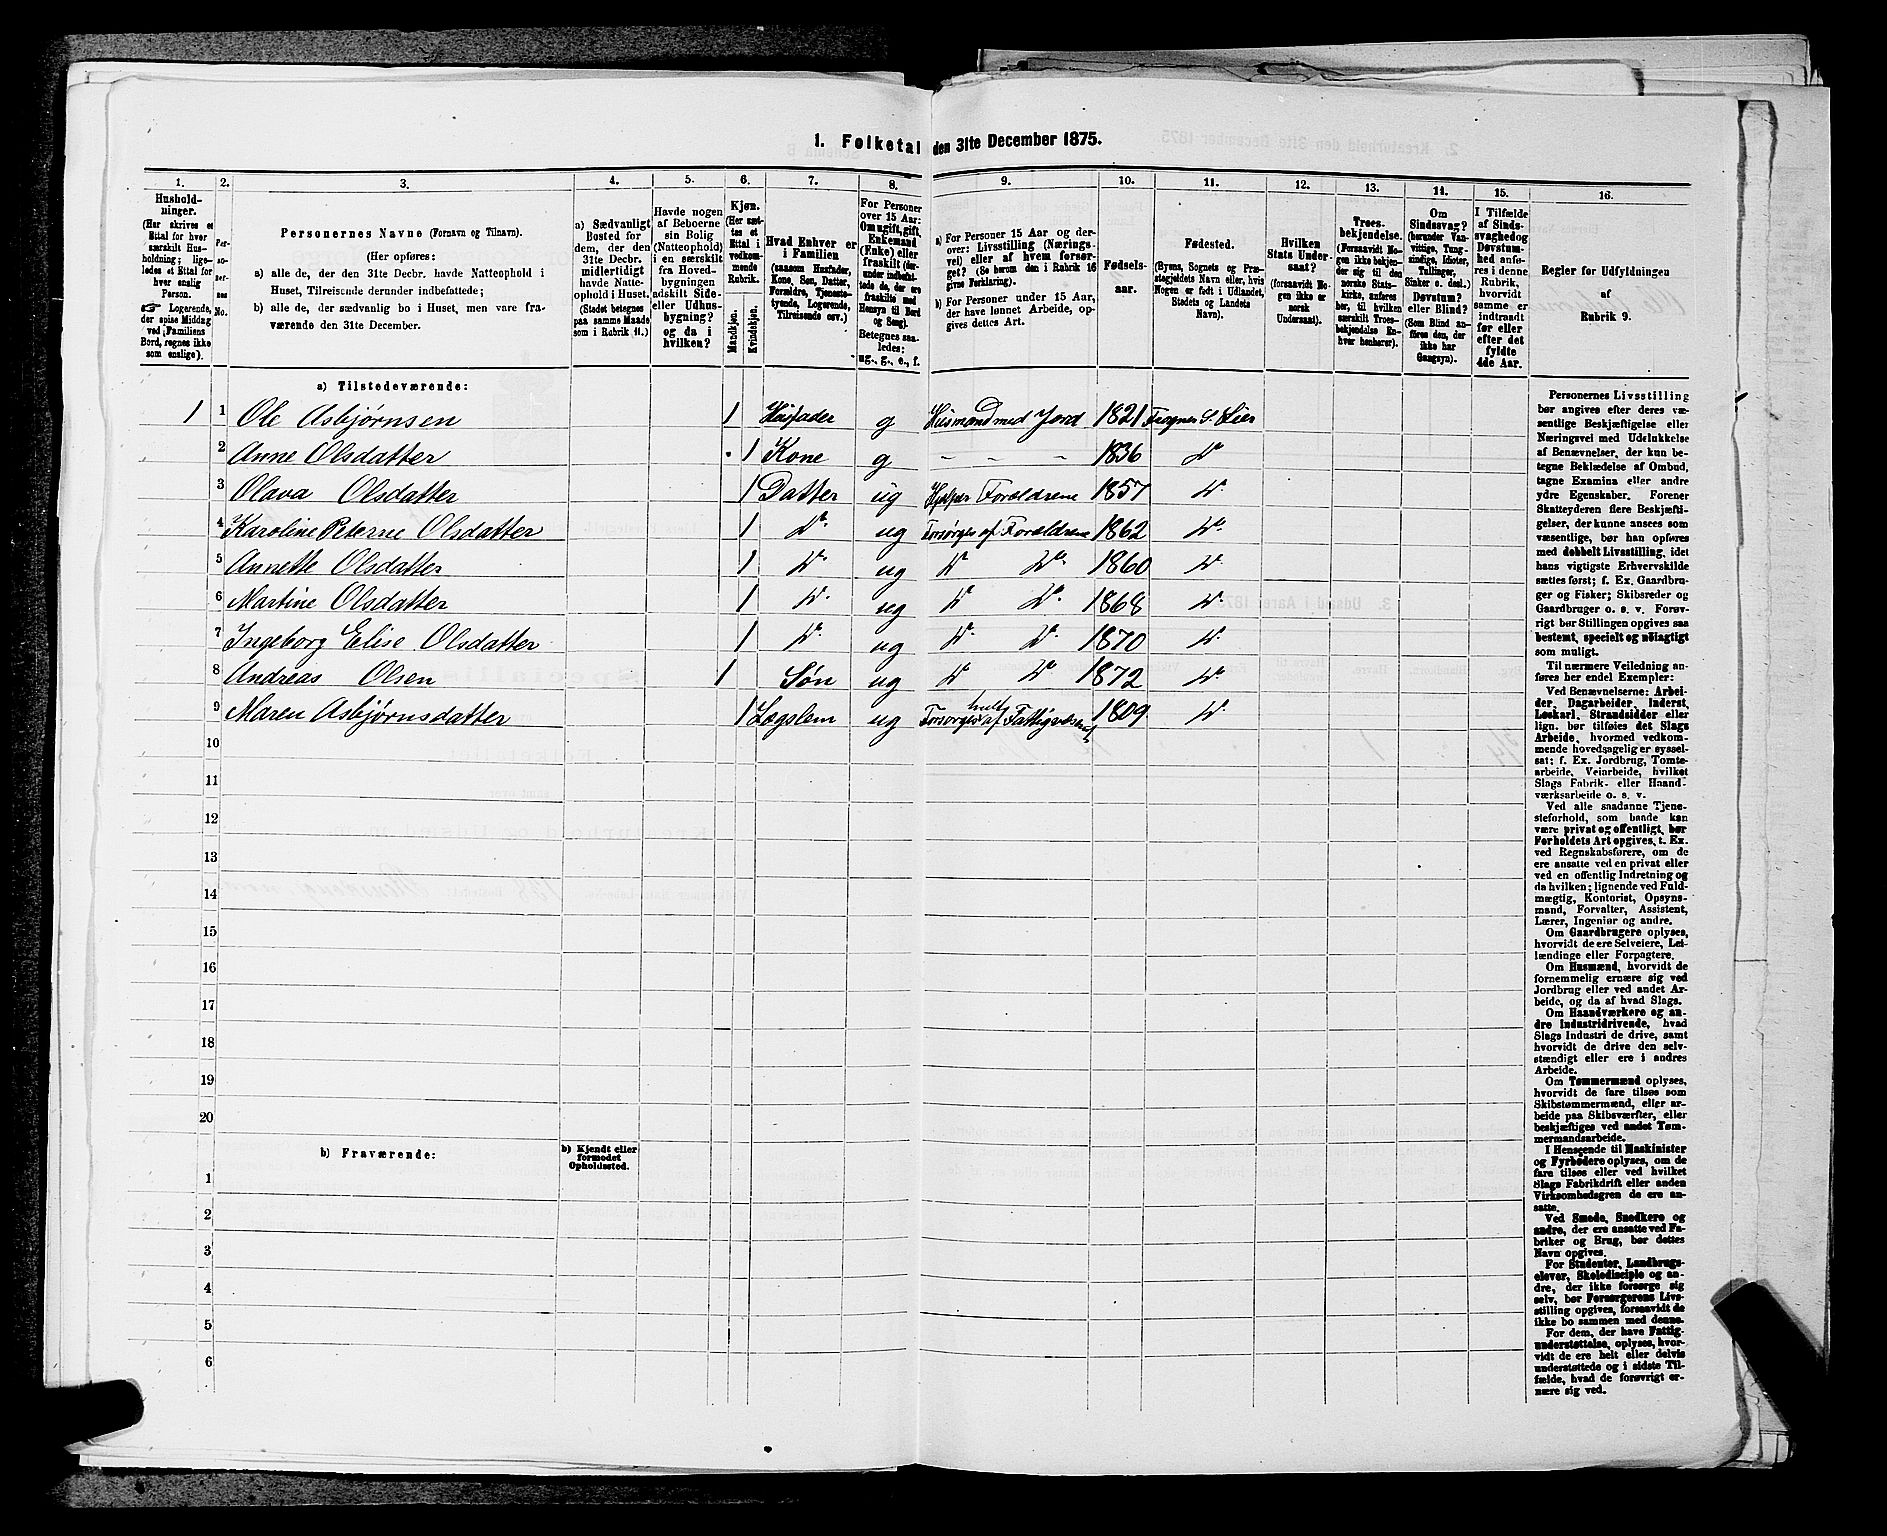 1. Folketal den 31te December 1875.
1. 2. 3. 4. 5. 6. 7. 8. 9. 10. 11. 12. 13. 14. 15. 16.
Husholdninger.
(Her skrives et
Ettal for hver
særskilt Husholdning;
ligeledes et Ettal for
hver enslig
Person.
Logerende,
der spise Middag
ved Familiens
Bord, regnes ikke
som enslige).
Personernes No.
Personernes Navne (Fornavn og Tilnavn).
(Her opføres:
a) alle de, der den 31te Decbr. havde Natteophold i
Huset, Tilreisende derunder indbefattede;
b) alle de, der sædvanlig bo i Huset, men vare fraværende
den 31te December.
a) Sædvanligt
Bosted for
dem, der den
31te Decbr.
midlertidigt
havde Natteophold
i Huset.
(Stedet betegnes
paa samme Maade
som i Rubrik 11.)
Havde nogen
af Beboerne
sin Bolig
(Natteophold)
i en særskilt
fra Hovedbygningen
adskilt Side-
eller Udhusbygning?
og da i
hvilken?
Kjøn.
(Her sættes
et
Ettal i
vedkommende
Rubrik.
Mandkjøn.
Kvindekjøn.
Hvad Enhver er
i Familien
(saasom Husfader,
Kone, Søn, Datter,
Forældre, Tjenestetyende,
Logerende,
Tilreisende osv.)
For Personer
over 15 Aar:
Om ugift, gift,
Enkemand
(Enke) eller
fraskilt (derunder
indbefattede
de, der ere
fraskilte med
Hensyn til Bord
og Seng).
Betegnes saaledes:
ug., g., e., f.
a) For Personer 15 Aar og derover:
Livsstilling (Næringsvei)
eller af hvem forsørget?
(Se herom den i Rubrik 16
givne Forklaring).
b) For Personer under 15 Aar,
der have lønnet Arbeide, opgives
dettes Art.
Fødselsaar.
Fødested.
(Byens, Sognets og Præstegjeldets
Navn eller, hvis
Nogen er født i Udlandet,
Stedets og Landets
Navn).
Hvilken
Stats Undersaat?
(forsaavidt Nogen
ikke er
norsk
Undersaat).
Troesbekjendelse.
(Forsaavidt Nogen
ikke bekjender
sig til den
norske Statskirke,
anføres
her, til hvilken
særskilt Troesbekjendelse
Enhver
henhører).
Om
Sindssvag?
(herunder Vanvittige,
Tungsindige,
Idioter,
Tullinger,
Sinker o. desl.)
Døvstum?
eller Blind?
(Som Blind anføres
den, der
ikke har
Gangsyn).
I Tilfælde
af Sindssvaghed
og
Døvstumhed
anføres
i denne
Rubrik,
hvorvidt
samme er
indtraadt
før eller
efter det
fyldte
4de Aar.
Regler for Udfyldningen
af
Rubrik 9.
a) Tilstedeværende:
1 1 Ole Asbjørnsen 1 Husfader g Husmand med Jord 1821 Frogner S. Lier
2 Anne Olsdatter 1 Kone g - - - 1836 Do
3 Olava Olsdatter 1 Datter ug Hjelper Forældrene 1857 Do
4 Karoline Peterne Olsdatter 1 Do ug Forsørges af Forældrene 1862 Do
5 Annette Olsdatter 1 Do ug Do Do 1860 Do
6 Martine Olsdatter 1 Do ug Do Do 1868 Do
7 Ingeborg Elise Olsdatter 1 Do ug Do Do 1870 Do
8 Andreas Olsen 1 Søn ug Do Do 1872 Do
9 Maren Asbjørnsdatter 1 Lægslem ug Forsørges helt af Fattigvæsenet 1809 Do
10
11
12
13
14
15
16
17
18
19
20
b) Fraværende:
b) Kjendt eller
formodet
Opholdssted.
1
2
3
4
5
6
Personernes Livsstilling
bør angives efter deres væsentlige
Beskjæftigelse eller
Næringsvei med Udelukkelse
af Benævnelser, der kun betegne
Beklædelse af Ombud,
tagne Examina eller andre
ydre Egenskaber. Forener
Skatteyderen flere Beskjæftigelser,
der kunne ansees som
væsentlige, bør han opføres
med dobbelt Livsstilling, idet
hans vigtigste Erhvervskilde
sættes først; f. Ex. Gaardbruger
og Fisker; Skibsreder og
Gaardbruger o. s. v. Forøvrigt
bør Stillingen opgives saa
bestemt, specielt og nøiagtigt
som muligt.
Til nærmere Veiledning anføres
her endel Exempler:
Ved Benævnelserne: Arbeider,
Dagarbeider, Inderst,
Løskarl, Strandsidder eller
lign. bør tilføies det Slags
Arbeide, hvormed vedkommende
hovedsagelig er sysselsat;
f. Ex. Jordbrug, Tomtearbeide,
Veiarbeide, hvilket
Slags Fabrik- eller Haandværksarbeide
o. s. v.
Ved alle saadanne Tjenesteforhold,
som baade kan
være privat og offentligt, bør
Forholdets Art opgives, t. Ex.
ved Regnskabsførere, om de
ere ansatte ved en privat eller
ved en offentlig Indretning og
da hvilken; lignende ved Fuldmægtig,
Kontorist, Opsynsmand,
Forvalter, Assistent,
Lærer, Ingeniør og andre.
Om Gaardbrugere oplyses,
hvorvidt de ere Selveiere, Leilændinge
eller Forpagtere.
Om Husmænd, hvorvidt de
fornemmelig ernære sig ved
Jordbrug eller ved andet Arbeide,
og da af hvad Slags.
Om Haandværkere og andre
Industridrivende, hvad
Slags Industri de drive, samt
hvorvidt de drive den selvstændigt
eller ere i andres
Arbeide.
Om Tømmermænd oplyses,
hvorvidt de fare tilsøs som
Skibstømmermænd, eller arbeide
paa Skibsværfter, eller
beskjæftiges ved andet Tømmermandsarbeide.
I Henseende til Maskinister
og Fyrbødere oplyses, om de
fare tilsøs eller ved hvilket
Slags Fabrikdrift eller anden
Virksomhedsgren de ere ansatte.
Ved Smede, Snedkere og
andre, der ere ansatte ved Fabriker
og Brug, bør dettes
Navn opgives.
For Studenter, Landbrugselever,
Skoledisciple og andre,
der ikke forsørge sig
selv, bør Forsørgerens Livsstilling
opgives, forsaavidt de
ikke bo sammen med denne.
For dem, der have Fattigunderstøttelse,
oplyses, hvorvidt
de ere helt eller delvis
understøttede og i sidste Tilfælde,
hvad de forøvrigt ernære
sig ved.